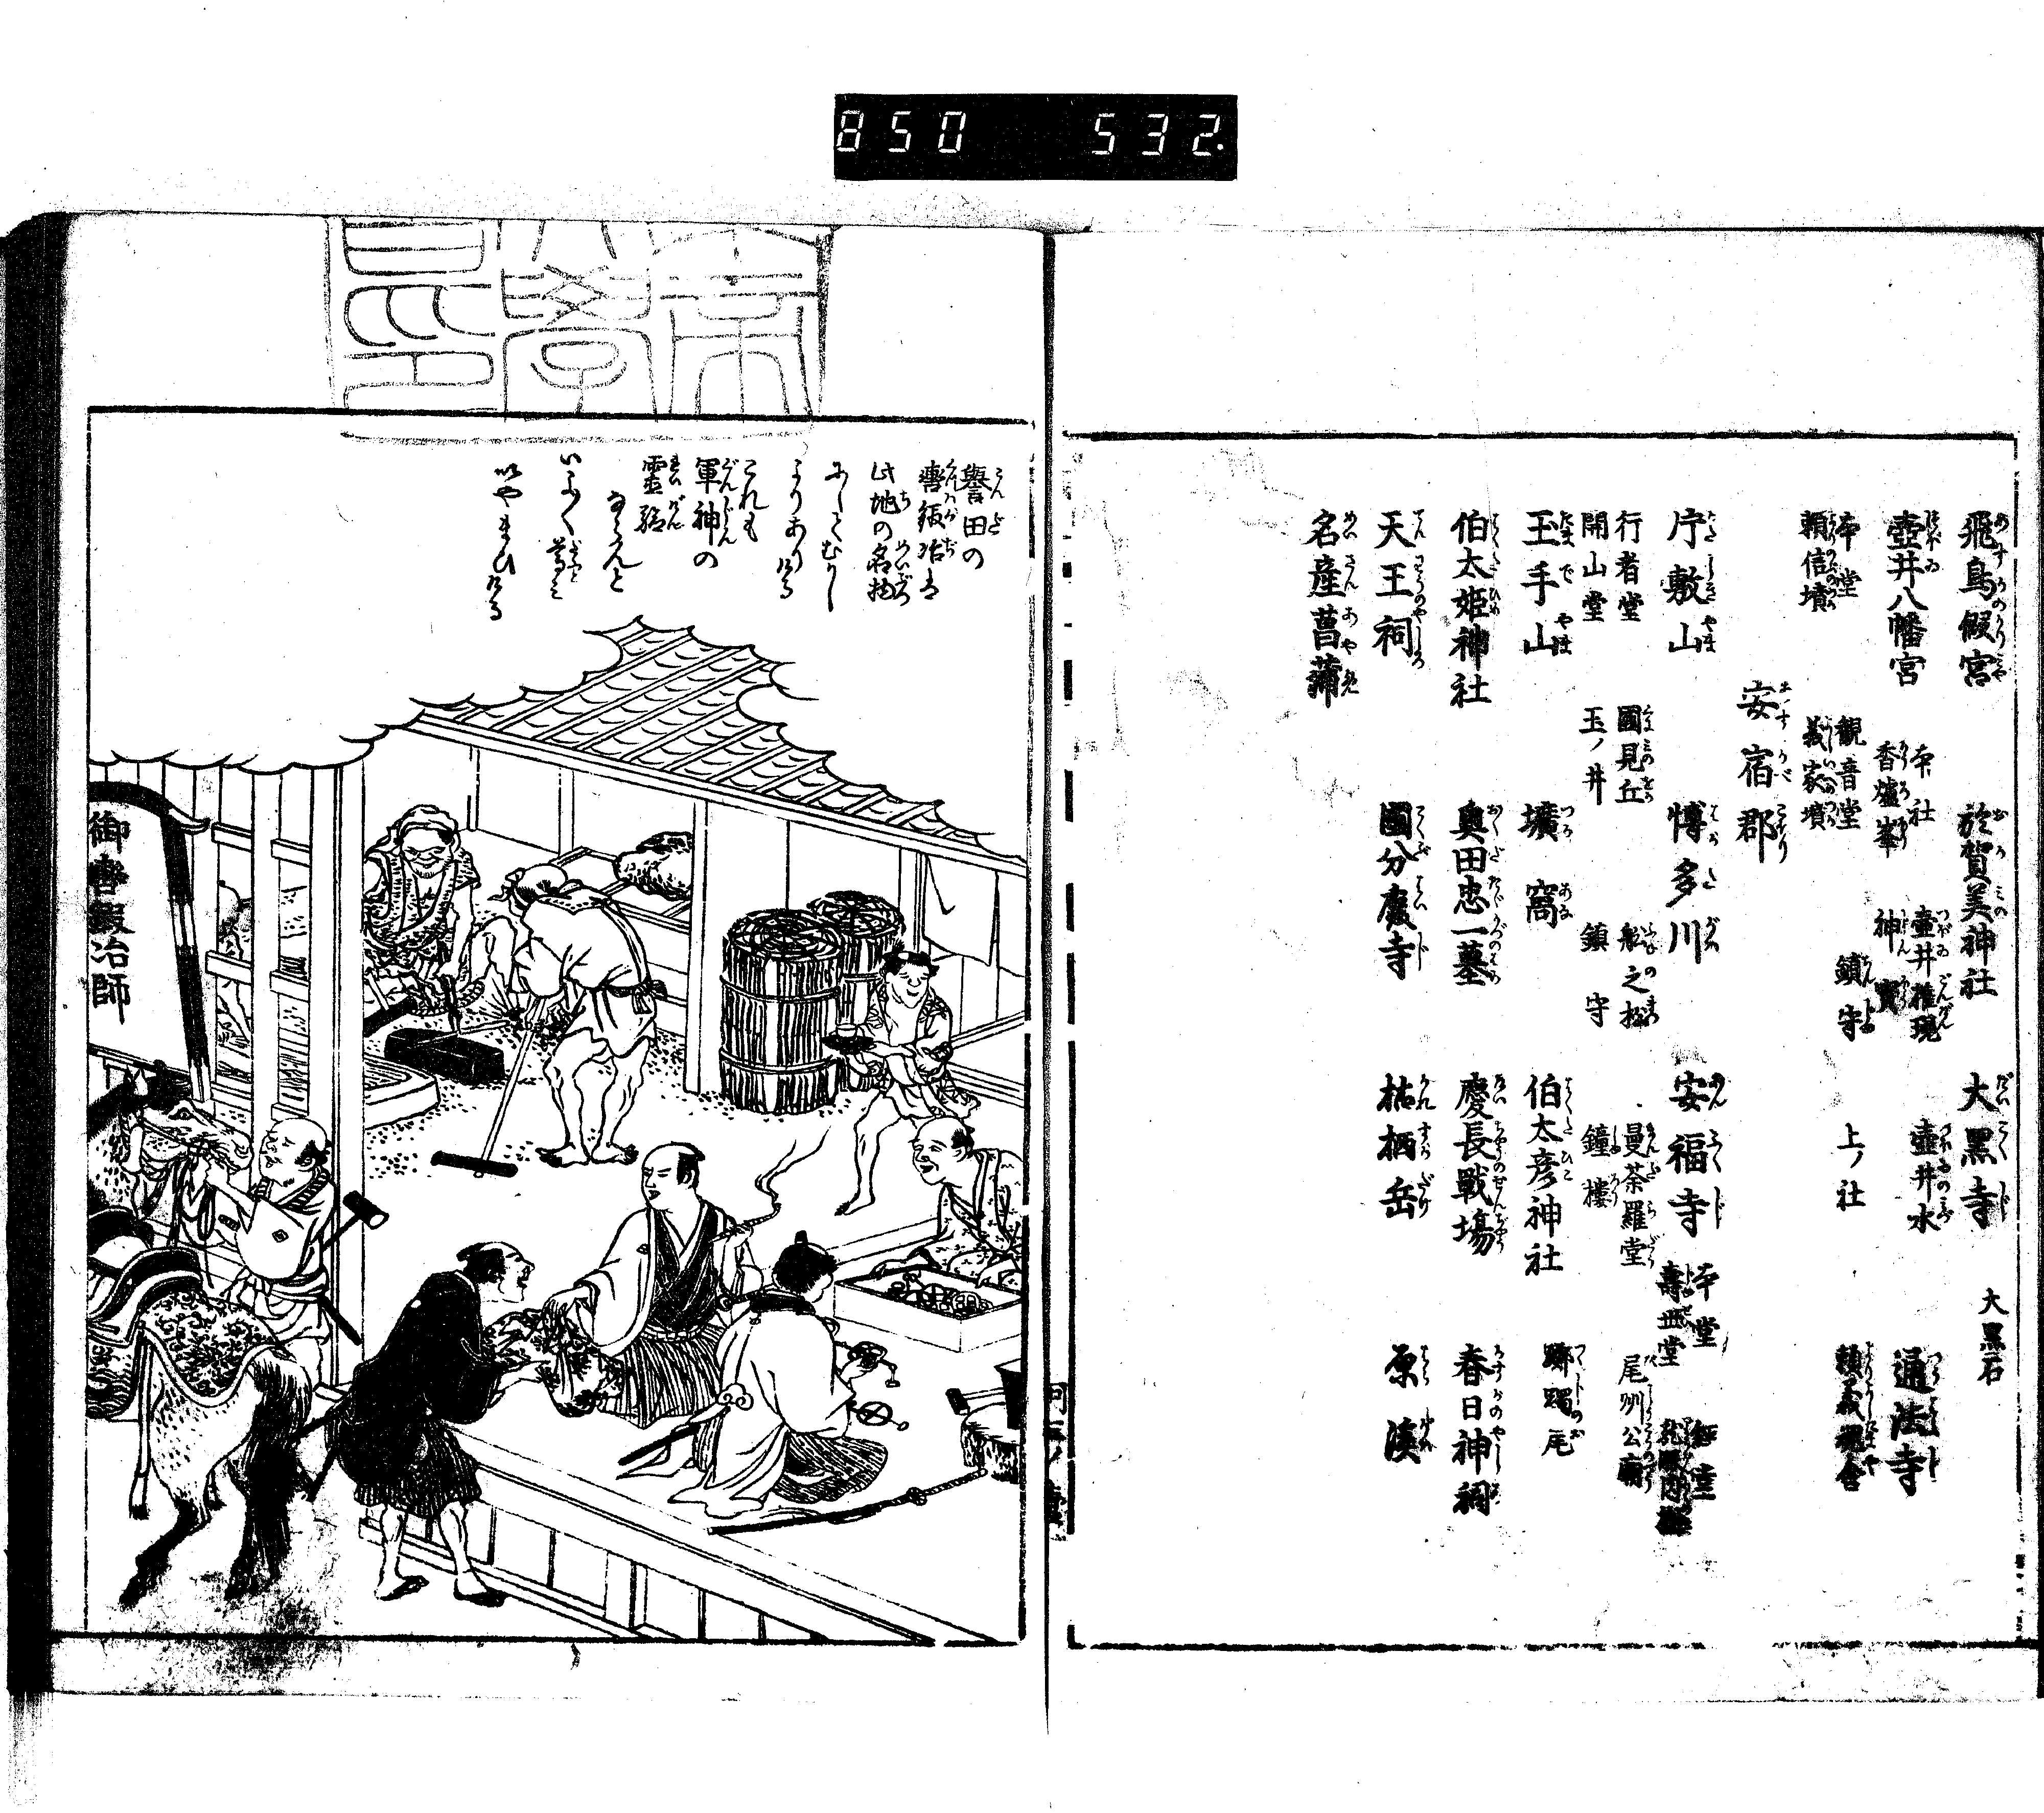 850 532
飛鳥假宮 於賀美神社 大黒寺 大黒石
壺井八幡宮 本社 壺井権現 壺井水 通法寺
香爐峯 神寳
本堂 観音堂 鎮守 上ノ社 頼義魂舎
頼信墳 義家墳
安宿郡
片敷山 博多川 安福寺 本堂 経堂
壽血堂
行者堂 國見丘 舩之松 曼荼羅堂 尾州公廟
開山堂 玉ノ井 鎮守 鐘樓
玉手山 壙窩 伯太彦神社 躑躅尾
伯太姫神社 奥田忠一墓 慶長戰場 春日神祠
天王祠 國分廢寺 枯栖岳 原溪
名産菖蒲
譽田の
轡鍛冶は
此地の名物
にしてむかし
よりあり けり
これも
軍神の
霊験
ならんと
いよ〱尊み
敬やまひける
御轡鍛冶師